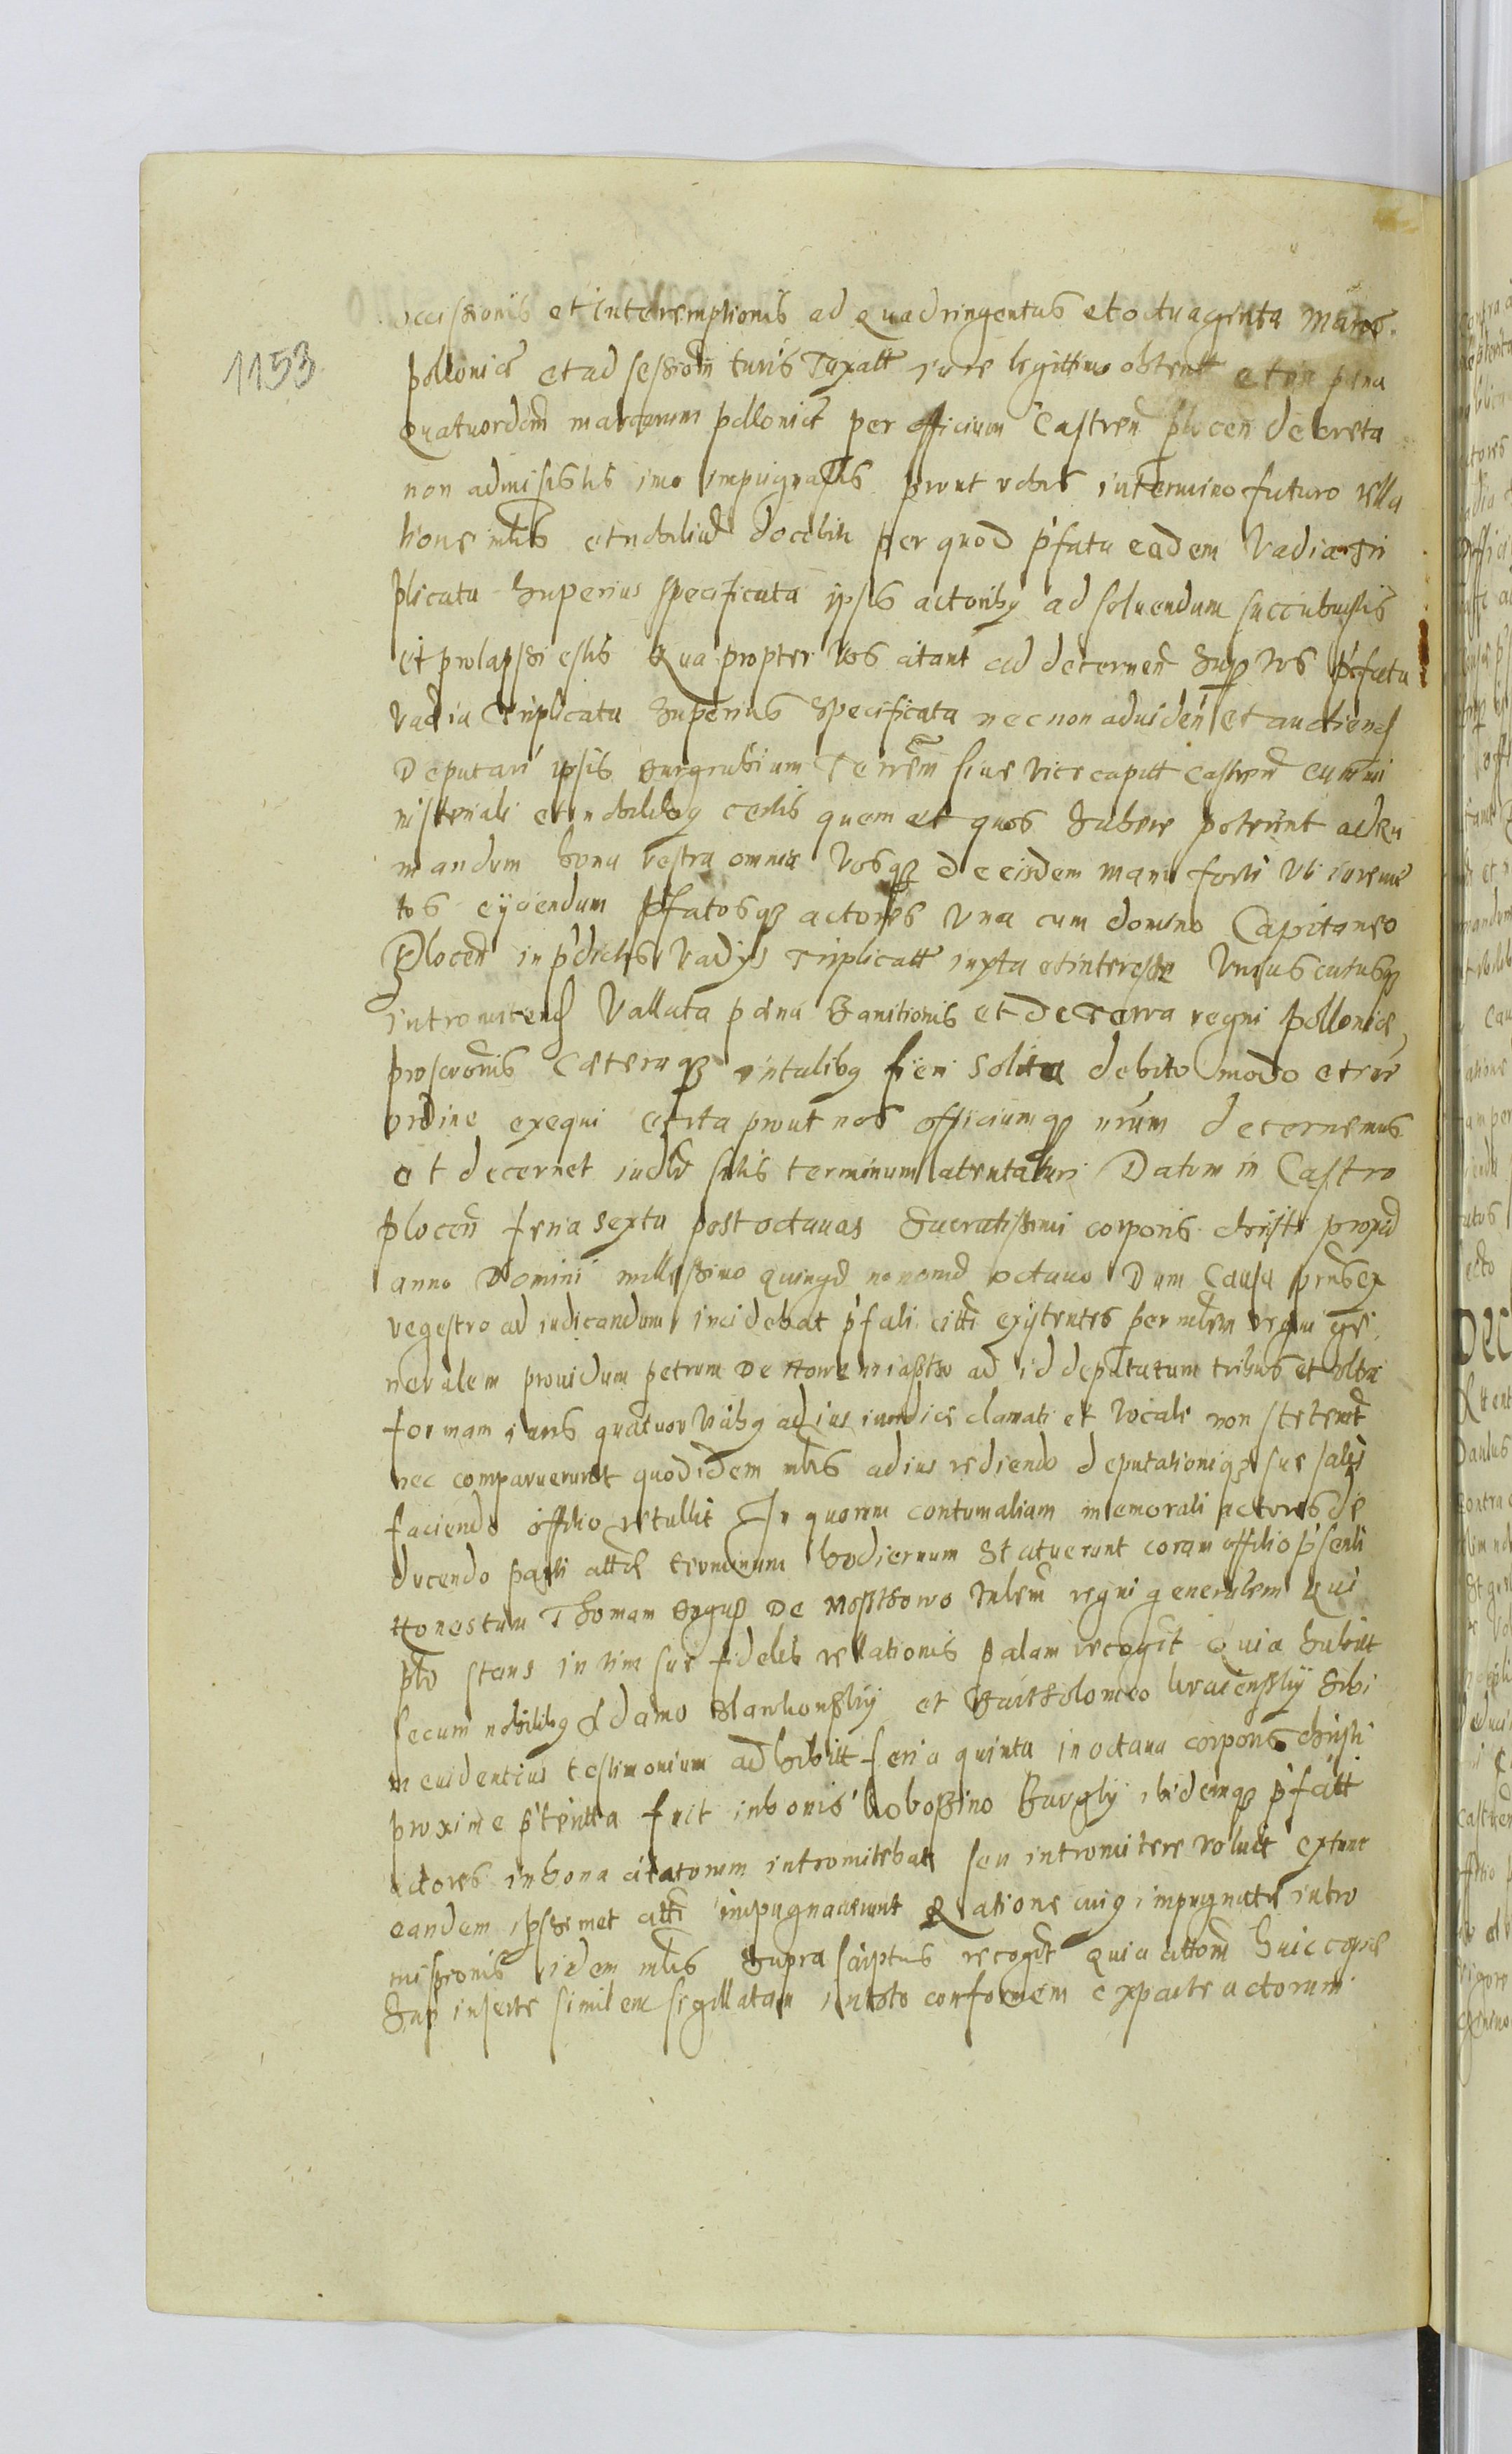 1153
occissionis et interemptionis ad quadringentas et octuaginta marcs.
pollonice et ad sessiom turris Taxatt iure legittimo obtentt et in pena
quatuordecim marcarum pollonict per officium Castren plocen decreta
non admisistis imo impugnastis prout vobis in termino futuro rella
tione mlis et nobiliud docebitt per quod pfata eadem Vadia tri
plicata superius specificata ipsis actoribg ad soluendum succubuistis
et prolapssi estis Qua propter Vos citant ad decernend sup Vos pfata
Vadia Triplicata superius specificata nec non ad viden et audiend
Deputari ipsis burgrabium Terrem siue Vice capitt castren cum mi
nisteriali et nobilibg certis quem aut quos habere poterint ad Ru
mandum bona vestra omnia Vosqz de eisdem manu forti Vti iureuic
tos eyciendum pfatosqz actores Vna cum domino Capitaneo
Plocen in pdictis Vadys Triplicatt iuxta et interesse Vnius cuiusqz
intromitend Vallata pæna banitionis et de Terra regni pollonice
proscronis Cæteraqz in talibg fieri solita debito modo et iur
ordine exequi et ita prout nos officiumqz nrum decernemus
et decernet iudle sitis terminum atentaturi Datum in Castro
plocen feria sexta post octauas sacratissimi corporis christi proxid
anno Domini millessimo quingd nonomd octauo Dum Causa prnts ex
regestro ad iudicandum incidebat pfati citti existentes per mlem regni ge
neralem prouidum petrum De Nowemiastho ad id deputatum tribus et vltra
formam iuris quatuor Vicibg ad ius iuridice clamati et Vocati non steterut
nec comparuerunt quod idem mlis ad ius rediendo deputationiqz sue satis
faciendo offitio retullit In quorum contumatiam memorati actores de
ducendo parti attce terminum hodiernum statuerunt coram offitio psenti
Honestum Thomam De Mosthowo mlem regni generalem Qui
pto stans in vim sue fidelis rellationis palam recogit Quia habitt
secum nobilibg Adamo et Bartholomeo sibi
in euidentius testimonium adhibitt feria quinta in octaua corporis christi
proxime pterita fuit in bonis ibidemqz pfatt
actores in bona citatorum intromitebatt seu intromitere voluit extunc
eandem ipsimet atti impugnauerunt Ratione cuig impugnate intro
missionis idem mlis supra scriptus recogit quia attom huic copie
sup inserte similem sigillatam in toto conformem ex parte actorum